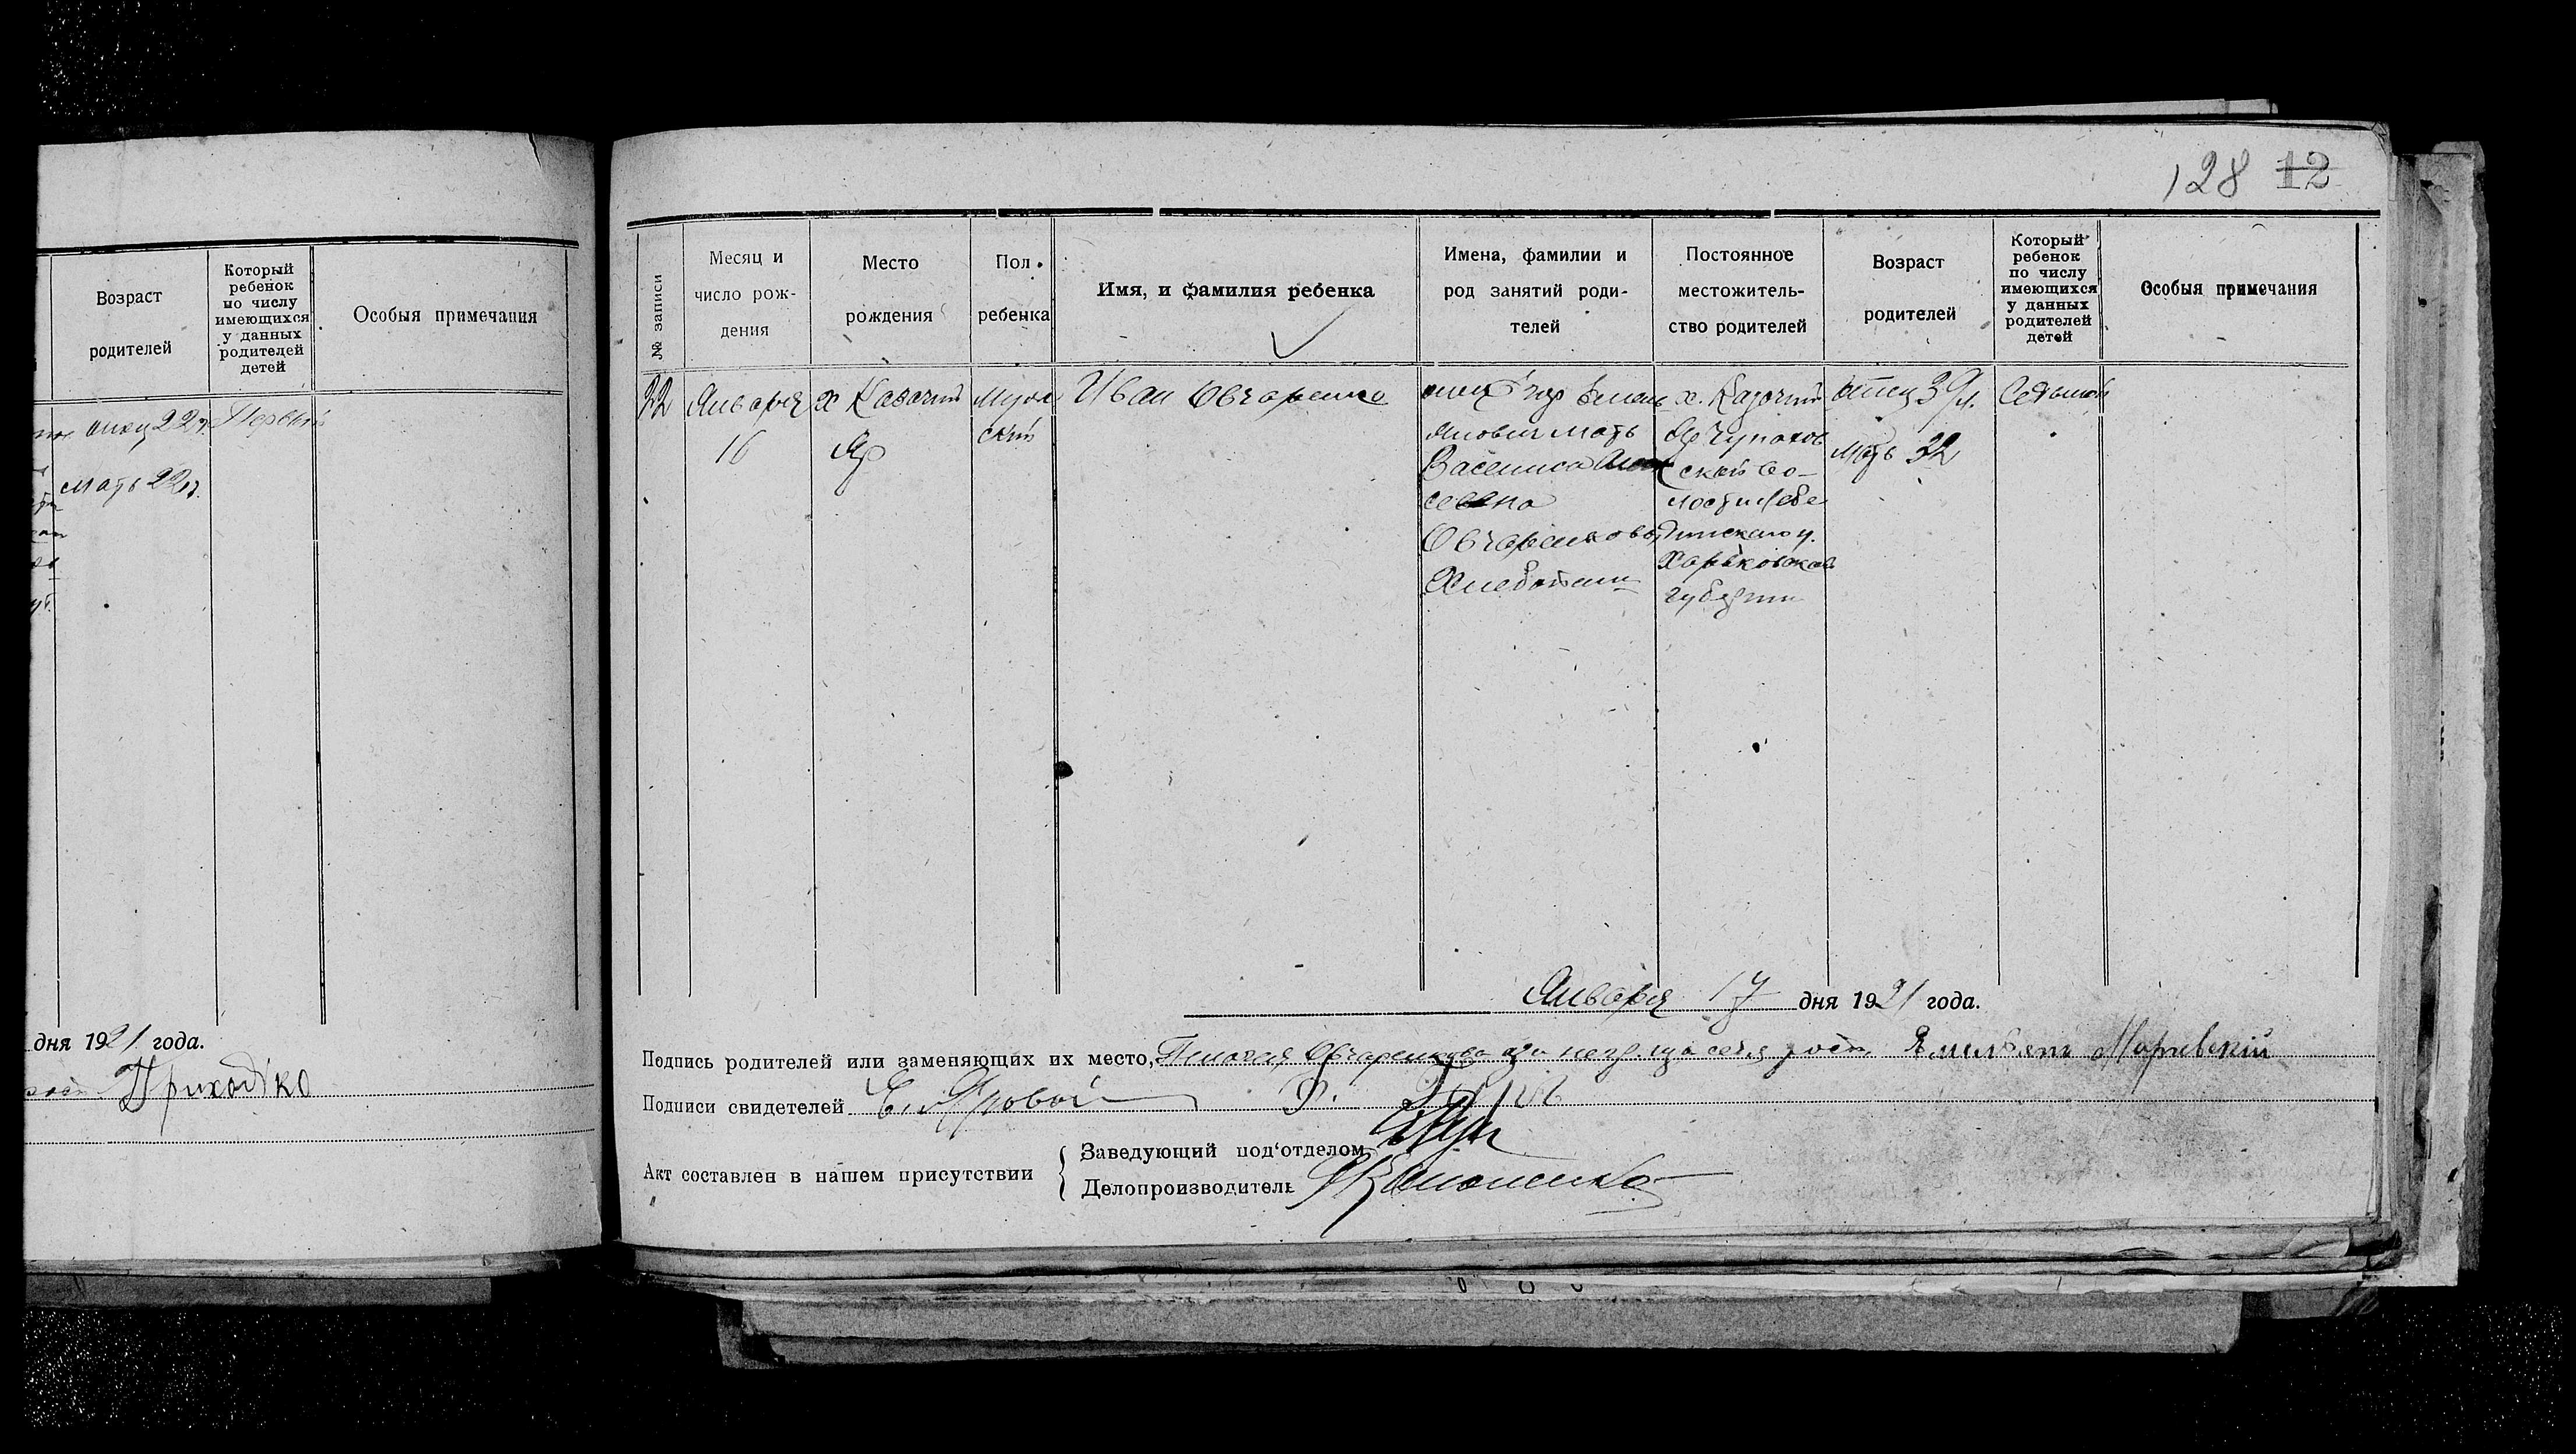 128 12
Возраст родителей
Который ребенок по числу имеющихся у данных родителей детей
Особыя примечания
отец 22 г. Первый
мать 22 г.
дня 1921 года.
Приходько
№ записи
Месяц и число рождения
Место рождения
Пол ребенка
Имя, и фамилия ребенка
Имена, фамилии и род занятий родителей
Постоянное местожительство родителей
Возраст родителей
Который ребенок по числу имеющихся у данных родителей детей
Особыя примечания
22
Января
16
х Казачий
Яр
Муж
ский
Иван Овчаренко
отец
янович мать
Василиса
сеевна
Овчаренкова
х. Казачий
Яр Чупахов
ской во-
лости Лебе
динскаго у.
Харьковской
губернии
отец 39 л.
мать 32
Седьмой
Января 17 дня 1921 года.
Подпись родителей или заменяющих их место,
Подписи свидетелей Яровой
Акт составлен в нашем присутствии
Заведующий под‘отделом
Делопроизводитель